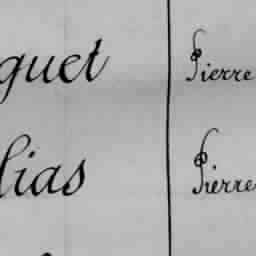 guet Pierre
lias Pierre